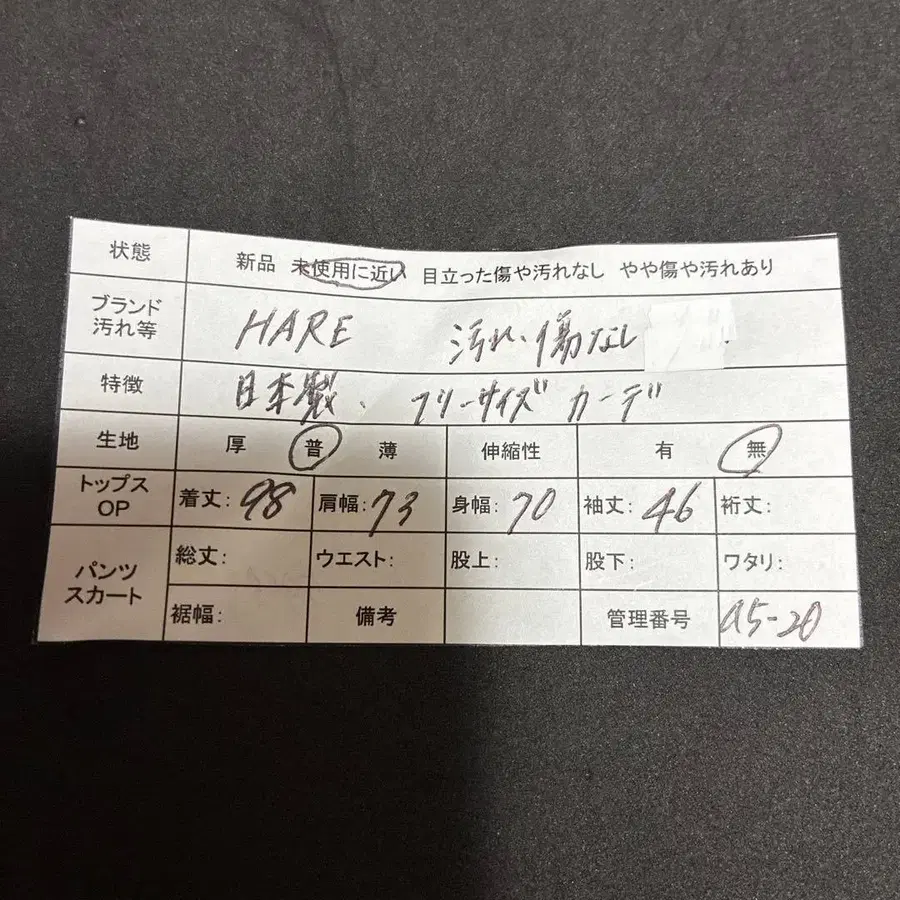 状態 新品 未使用に近い 目立った傷や汚れなし やや傷や汚れあり
ブランド
汚れ等 HARE 汚れ、傷なし
特徴 日本製、フリーサイズ カーデ
生地 厚 普 薄 伸縮性 有 無
トップス
OP 着丈:98 肩幅:73 身幅:70 袖丈:46 裄丈:
パンツ
スカート 総丈: ウエスト: 股上: 股下: ワタリ:
裾幅: 備考 管理番号 a5-20